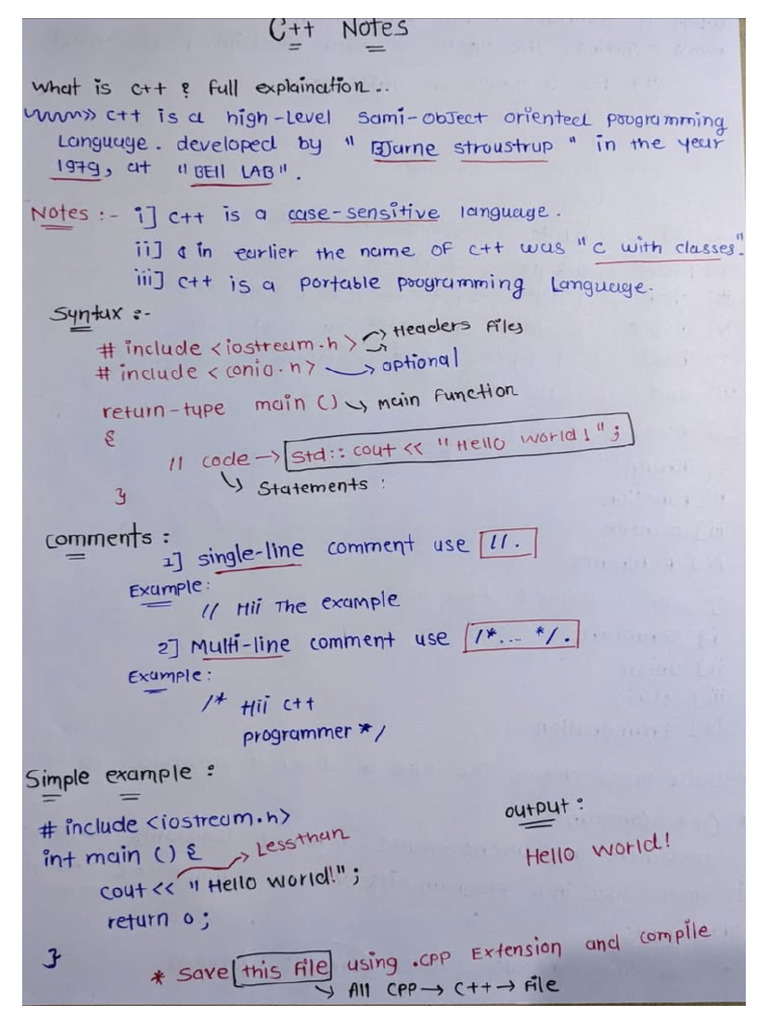 C++ Notes
What is C++ ? Full explaination..
C++ is a high-level Sami-object oriented poogramming
Language. developed by " BJarne stroustrup " in the year
1979, at "BEll LAB".
Notes :- i] C++ is a case-sensitive language.
ii] in earlier the name of C++ was "C with classes".
iii] C++ is a portable poogramming Language.
Syntax :-
# include <iostream.h> → Headers Files
# include <conio.h> → optional
return-type main () → main Function
{
// code → Std:: cout << "Hello world!";
→ Statements :
}
comments :
1] single-line comment use //.
Example:
// Hii The example
2] Multi-line comment use /*... */.
Example:
/* Hii C++
programmer */
Simple example :
# include <iostream.h>
output :
int main () {
Lessthan
Hello world!
cout << "Hello world!";
return 0;
}
* Save this file using .CPP Extension and compile
→ All CPP → C++ → File